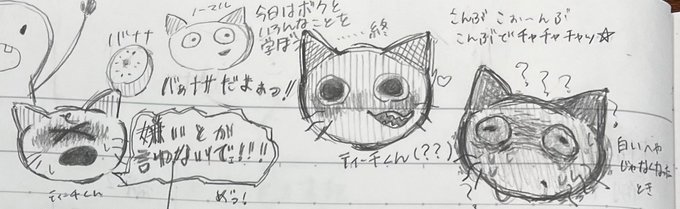 バナナ
ノーマル
今日はボクと
いろんなことを
学ぼう
……終
バァナナだよぉっ!!
こんぶ こぉ〜んぶ
こんぶでチャチャチャッ☆
嫌いとか
言わないでェ!!!!
ティーチくん
めっ!
ティーチくん(??)
???
?
白いへや
じゃなくなった
とき
?